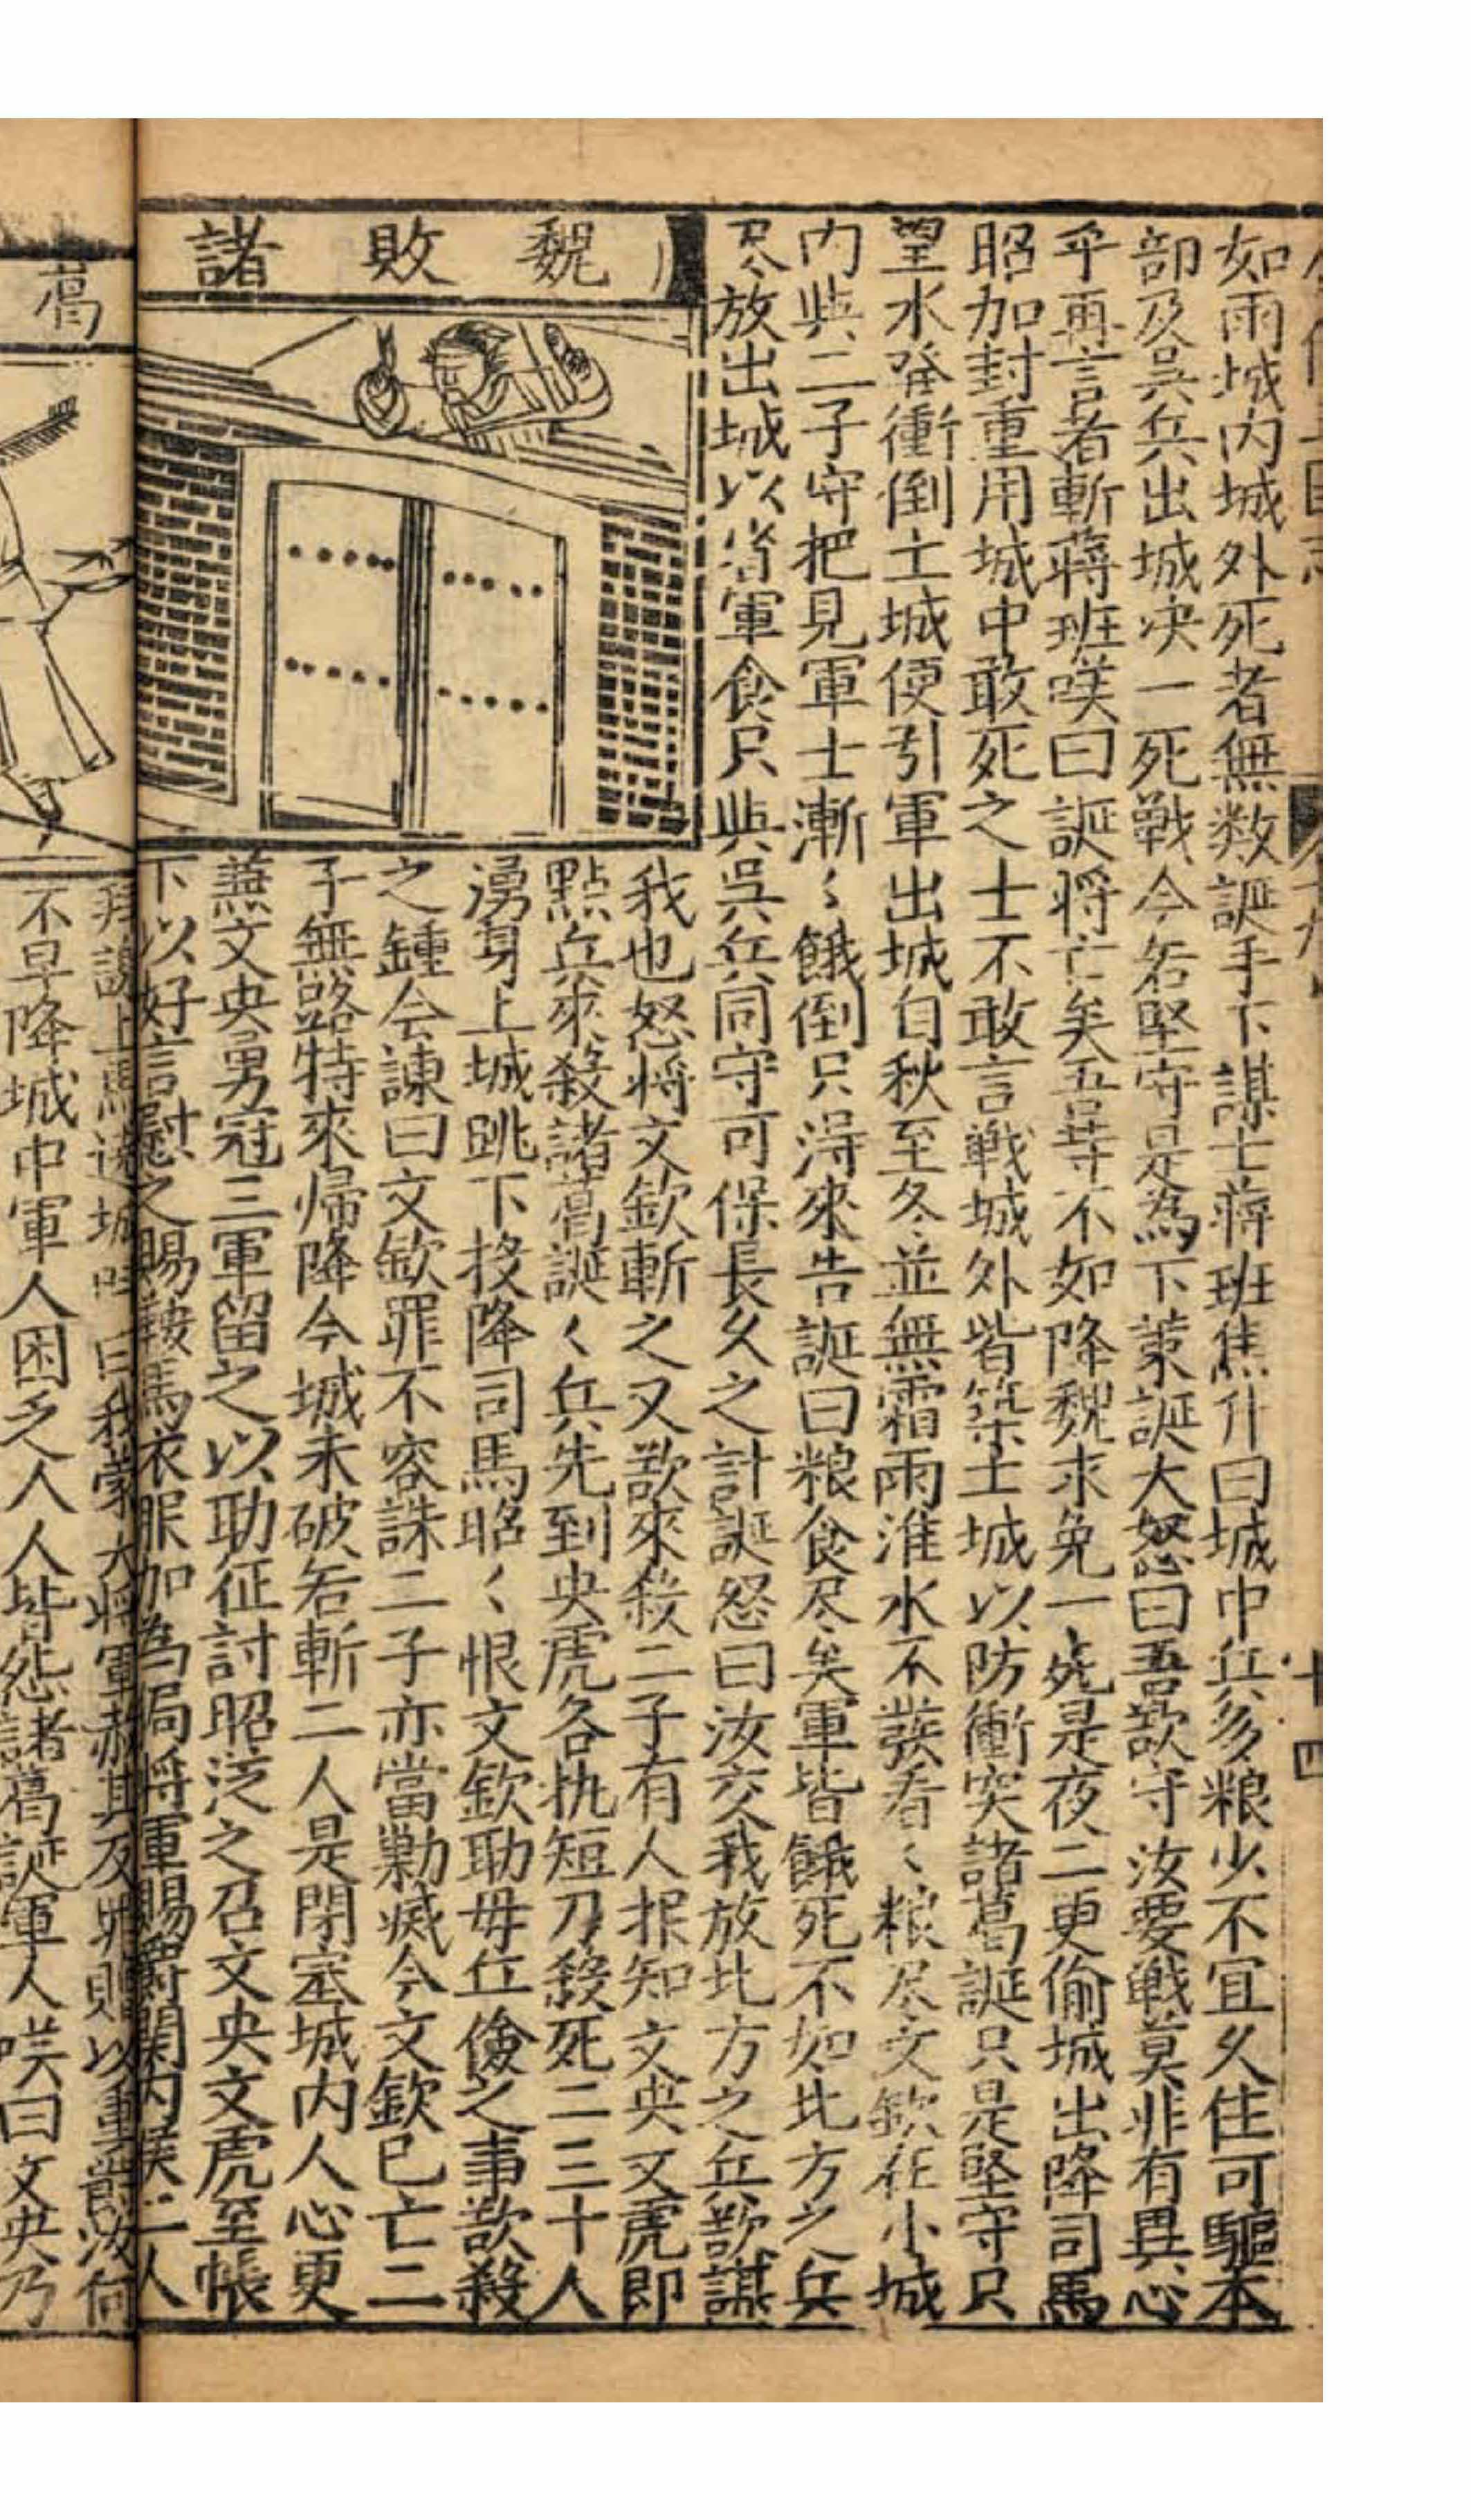 如雨城内城外死者無数誕手下謀士蔣班焦廾曰城中兵多粮少不宜久住可驅本
部及吳兵出城决一死戰今若堅守是為下策誕大怒曰吾欲守汝要戰莫非有異心
乎再言者斬蔣班嘆曰誕将亡矣吾等不如降魏求免一死是夜二更偷城出降司馬
昭加封重用城中敢死之士不敢言戰城外皆築土城以防衝突諸葛誕只是堅守只
望水發衝倒土城便引軍出城自秋至冬並無霜雨淮水不發看〻粮尽文欽在小城
内與二子守把見軍士漸〻餓倒只淂來告誕曰粮食尽矣軍皆餓死不如北方之兵
尽放出城以省軍食只與吳兵同守可保長久之計誕怒曰汝交我放北方之兵欲謀
魏敗諸
我也怒将文欽斬之又欲來殺二子有人报知文央文虎即
點兵來殺諸葛誕〻兵先到央虎各执短刀殺死二三十人
湧身上城跳下投降司馬昭〻恨文欽助毋丘儉之事欲殺
之鍾会諫曰文欽罪不容誅二子亦當勦滅今文欽已亡二
子無路特來帰降今城未破若斬二人是閉塞城内人心更
蕪文央勇冠三軍留之以助征討昭泛之召文央文虎至帳
下以好言慰之賜鞍馬衣服加為偏将軍賜爵関内侯二人
葛
拜謝上馬遶城 曰我蒙大將軍赦其反罪賜以重爵汝何
不早降城中軍人困乏人人皆怨諸葛誕軍人嘆曰文央乃
十四